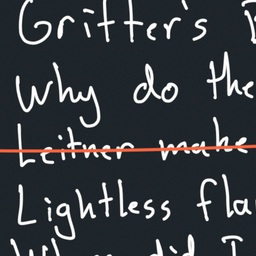 Gritter's
Why do the
Leitner make
Lightless fla
Why did I